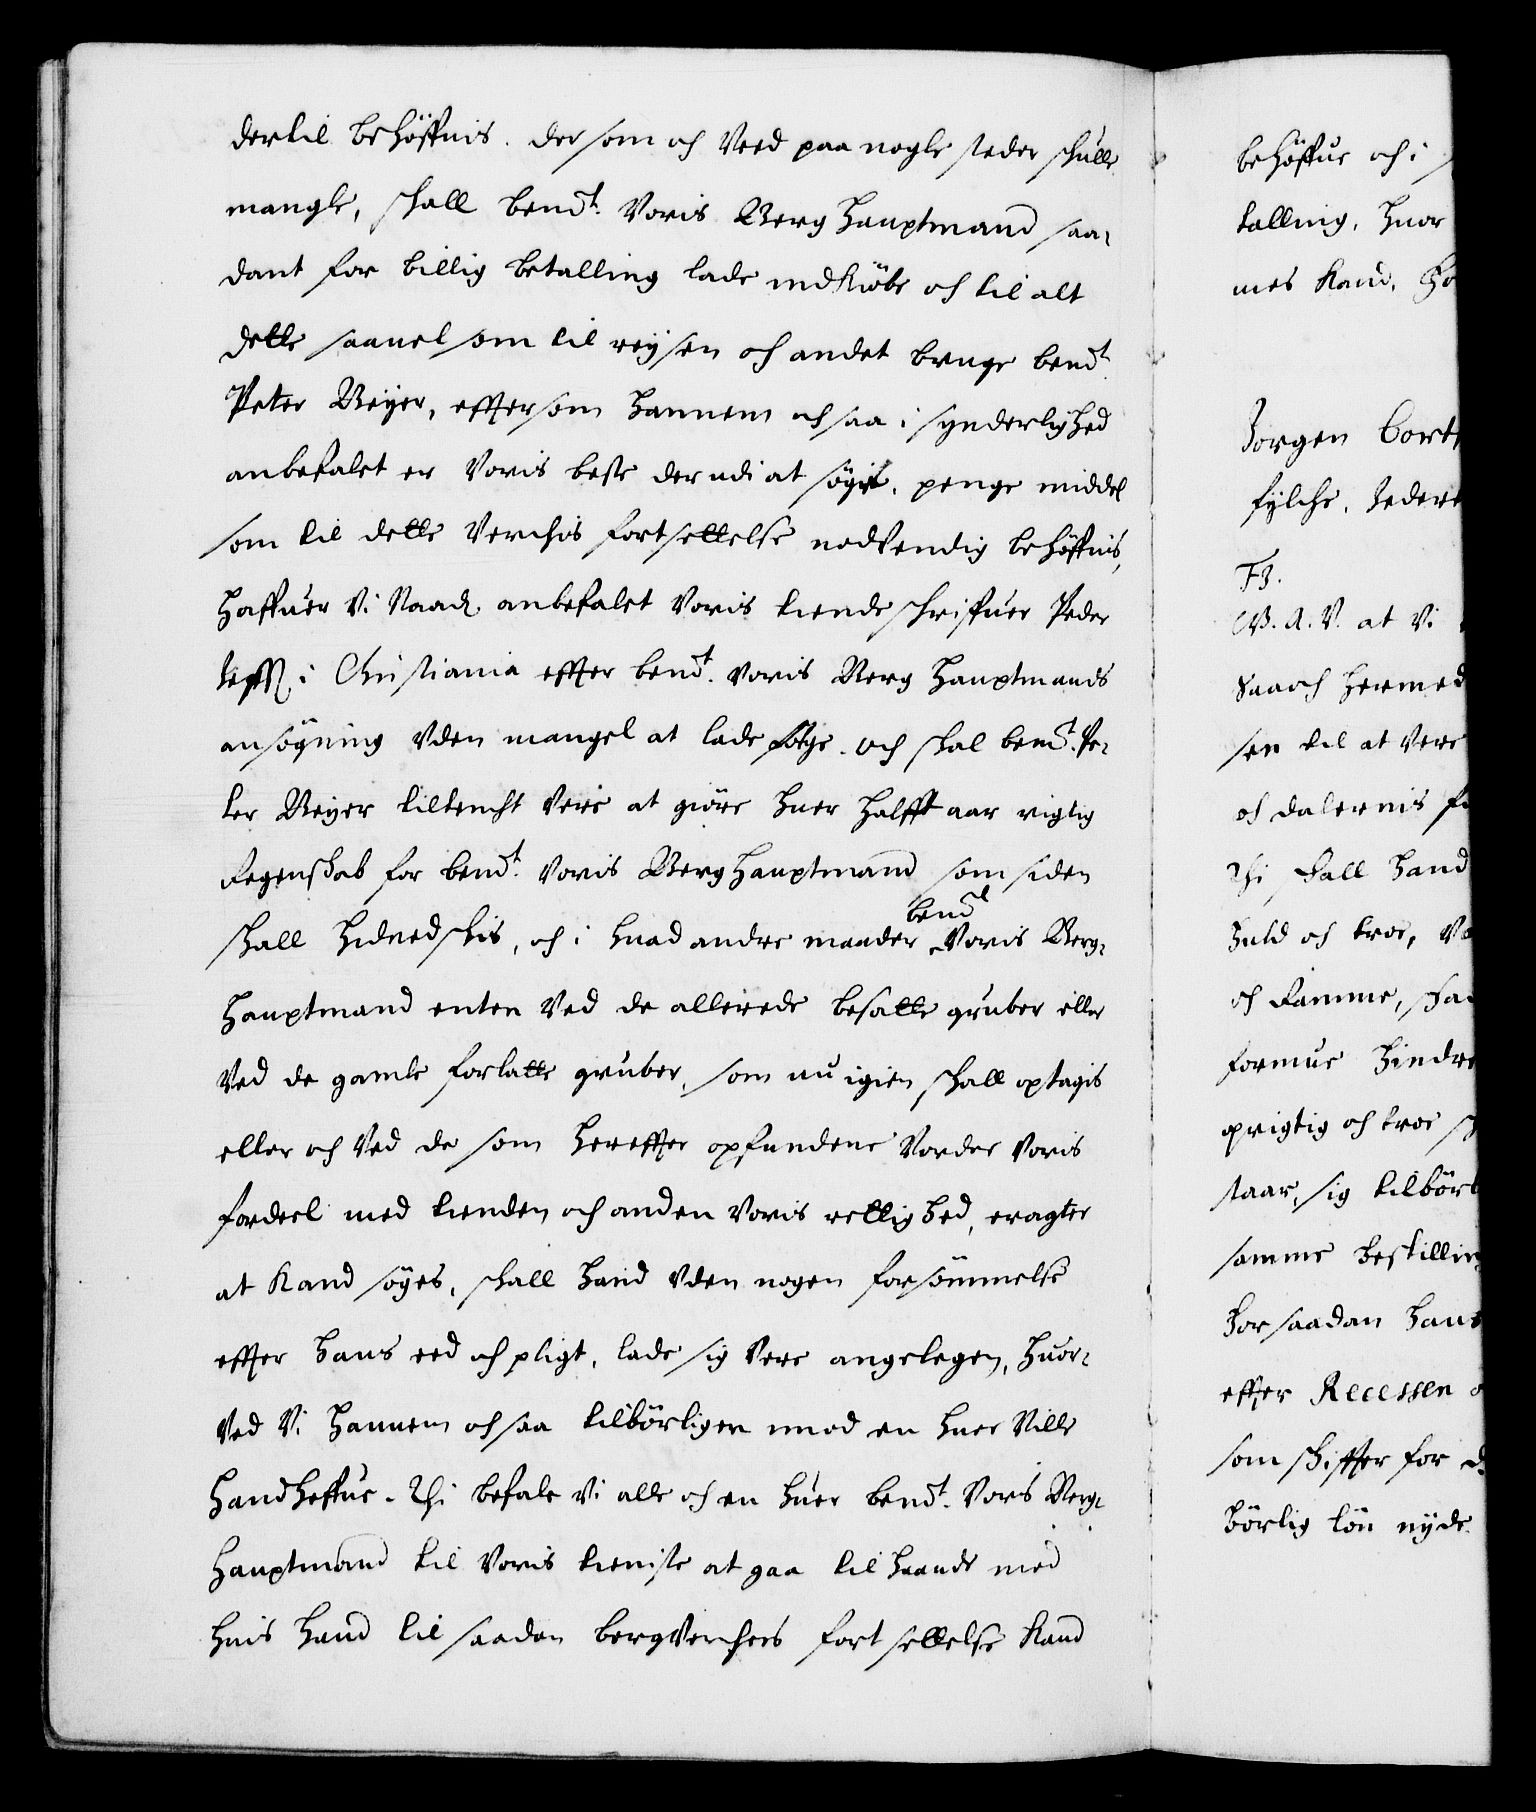 dertil behöffuis. der som och Veed paa nogle steder schulle
mangle, schall bemt. Voris Berg Hauptmand saa-
dant for billig betalling lade indkiöbe och til alt
dette saauel som til reÿsen och andet bruge bemt.
Peter Meÿer, effter som hannem och saa i synderlighed
anbefalet er Voris beste der udi at söge, penge middel
som til dette Verchis fortsettelse nodvendig behöffuis,
haffuer Vi Naad. anbefalet Voris tiende schriffuer Peder
i Christiania effter bemt. Voris Berg Hauptmands
ansögning Vden mangel at lade fölge. och skal bemt. Pe-
ter Meÿer tiltencht Vere at giöre huer halfft aar rigtig
Regenskab for bemt. Voris Berg Hauptmand som siden
bemt
schall hidnedschis, och i huad andre maader Voris Berg-
hauptmand enten Ved de allerede besatte gruber eller
Ved de gamle forlatte gruber, som nu igien schall optagis
eller och Ved de som hereffter opfundene Vorder Voris
fordeel med tienden och anden Voris rettighed, eragter
at kand söges, schall hand Vden nogen forsömmelse
effter hans eed och pligt, lade sig Vere angelegen, huor-
Ved Vi hannem och saa tilbörligen imod en huer Ville
handheffue. Thi befale Vi alle och en huer bemt. Voris Berg-
hauptmand til Voris tieniste at gaa til haande med
huis hand til saadan bergverchers fort settelse kand
behöffue och i
talling, huor
mes kand.
Jorgen Cort
fÿlche.
F3.
G. A. V. at Vi
Saaoch hermed
sen til at Vere
och dalernis
Thi skall hand
huld och troe,
och Ramme,
formue hindre
oprigtig och troe
staar, sig tilbör
samme bestillin
For saadan hans
effter Recessen
som schiffter for
börlig lön nÿde.